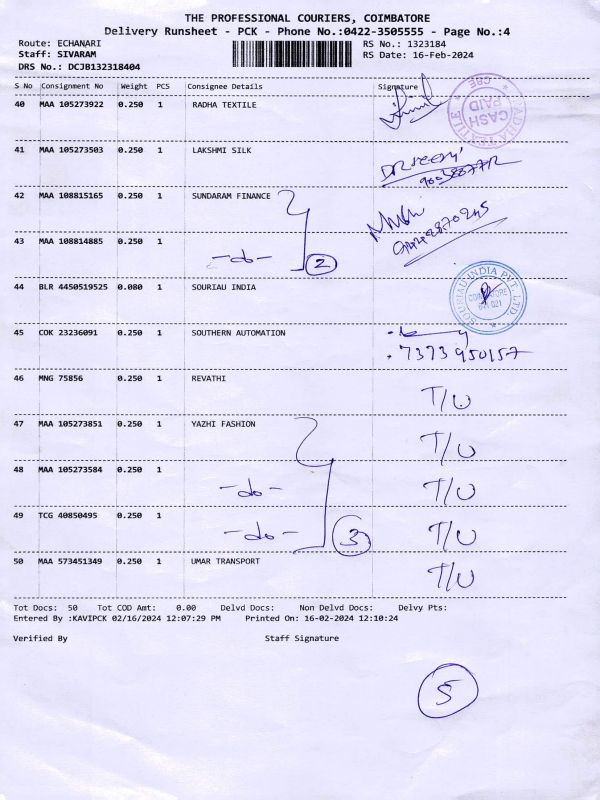 THE PROFESSIONAL COURIERS, COIMBATORE
Delivery Runsheet - PCK - Phone No.:0422-3505555 - Page No.:4
Route: ECHANARI RS No.: 1323184
Staff: SIVARAM RS Date: 16-Feb-2024
DRS No.: DCJB132318404
S No Consignment No Weight PCS Consignee Details Signature
40 MAA 105273922 0.250 1 RADHA TEXTILE
CASH PAID
RADHA TEXTILE
CBE
41 MAA 105273503 0.250 1 LAKSHMI SILK
42 MAA 108815165 0.250 1 SUNDARAM FINANCE
43 MAA 108814885 0.250 1 -do- 2
44 BLR 4450519525 0.080 1 SOURIAU INDIA
SOURIAU INDIA PVT. LTD
45 COK 23236091 0.250 1 SOUTHERN AUTOMATION
7373950157
46 MNG 75856 0.250 1 REVATHI T/U
47 MAA 105273851 0.250 1 YAZHI FASHION T/U
48 MAA 105273584 0.250 1 -do- T/U
49 TCG 40850495 0.250 1 -do- 3 T/U
50 MAA 573451349 0.250 1 UMAR TRANSPORT T/U
Tot Docs: 50 Tot COD Amt: 0.00 Delvd Docs: Non Delvd Docs: Delvy Pts:
Entered By :KAVIPCK 02/16/2024 12:07:29 PM Printed On: 16-02-2024 12:10:24
Verified By Staff Signature
5